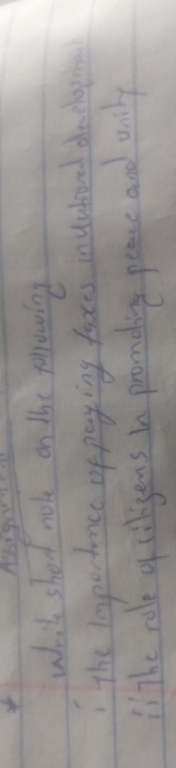 Assignment
* Write short note on the following
i the importance of paying taxes in national development
ii the role of citizens in promoting peace and unity